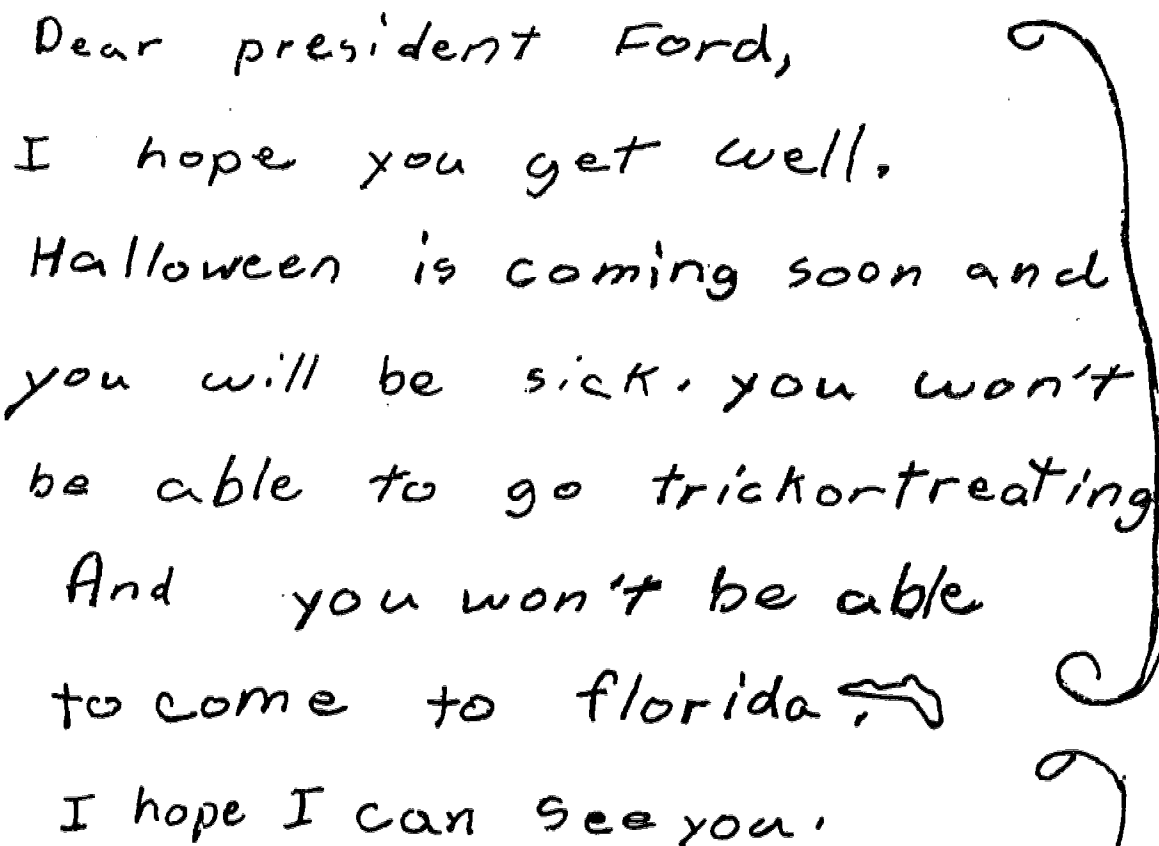 Dear president Ford,
I hope you get well.
Halloween is coming soon and
you will be sick. you won't
be able to go trickortreating
And you won't be able
to come to florida.
I hope I can see you.